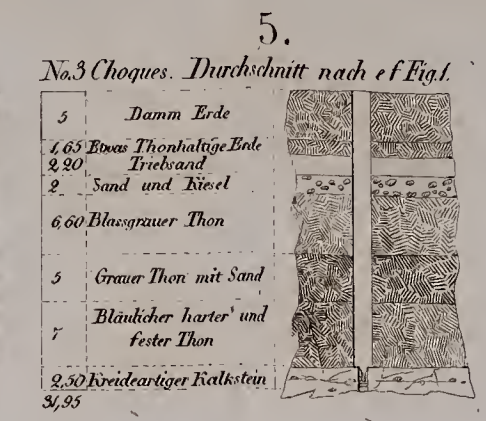 5.
No.3 Choques. Durchschnitt nach ef Fig.1.
5 Damm Erde
1,65 Etwas Thonhaltige Erde
2,20 Triebsand
2 Sand und Kiesel
6,60 Blassgrauer Thon
5 Grauer Thon mit Sand
7 Bläulicher harter und
fester Thon
2,50 Kreideartiger Kalkstein
31,95